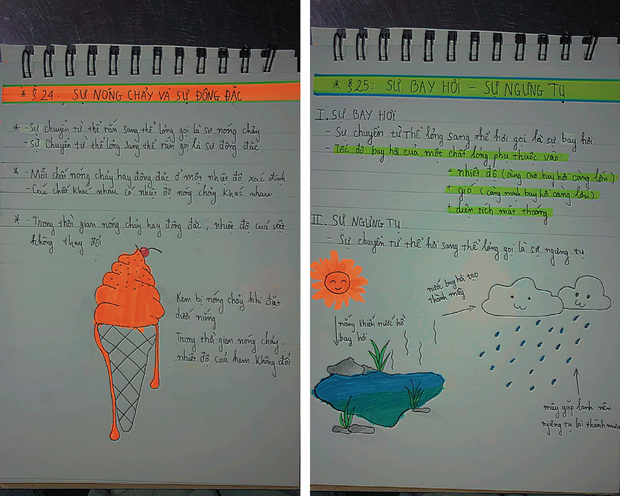 * § 24: SỰ NÓNG CHẢY VÀ SỰ ĐÔNG ĐẶC
* - Sự chuyển từ thể rắn sang thể lỏng gọi là sự nóng chảy
- sự chuyển từ thể lỏng sang thể rắn gọi là sự đông đặc
* - Mỗi chất nóng chảy hay đông đặc ở một nhiệt độ xác định
- Các chất khác nhau có nhiệt độ nóng chảy khác nhau
* - Trong thời gian nóng chảy hay đông đặc, nhiệt độ của vật
không thay đổi
Kem bị nóng chảy khi đặt
dưới nắng
Trong thời gian nóng chảy,
nhiệt độ của kem không đổi
* § 25: SỰ BAY HƠI - SỰ NGƯNG TỤ
I. SỰ BAY HƠI
- Sự chuyển từ thể lỏng sang thể hơi gọi là sự bay hơi
- Tốc độ bay hơi của một chất lỏng phụ thuộc vào
+ nhiệt độ (càng cao bay hơi càng lớn)
+ gió (càng mạnh bay hơi càng lớn)
+ diện tích mặt thoáng
II. SỰ NGƯNG TỤ
- Sự chuyển từ thể hơi sang thể lỏng gọi là sự ngưng tụ
nước bay hơi tạo
thành mây
nắng khiến nước hồ
bay hơi
mây gặp lạnh nên
ngưng tụ lại thành mưa